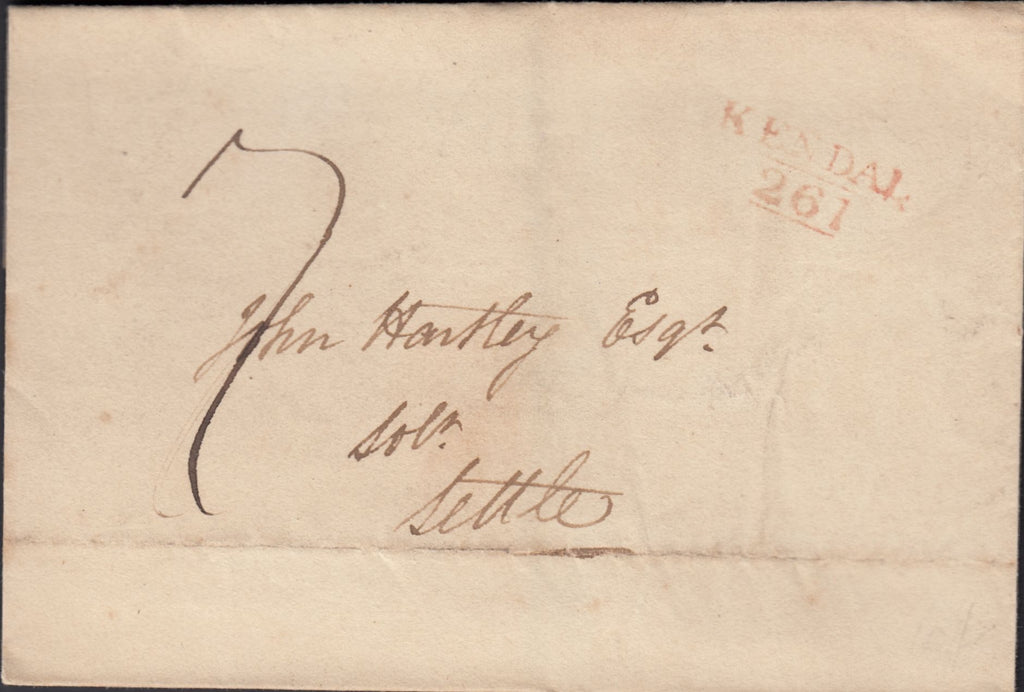 KENDAL
261
7
John Hartley Esqr.
Solr.
Settle